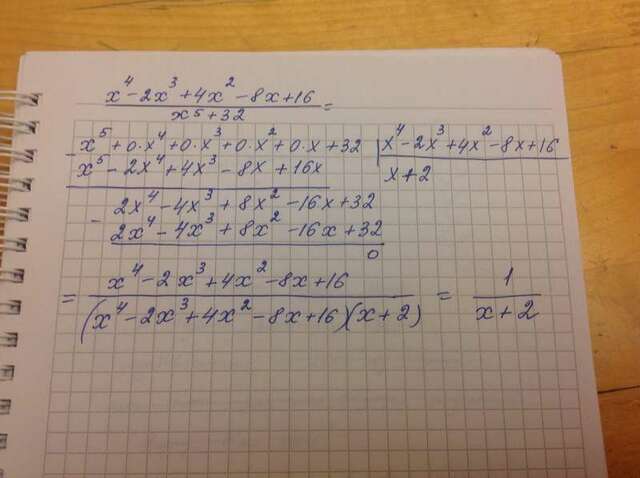 x⁴ - 2x³ + 4x² - 8x + 16
x⁵ + 32 =
- x⁵ + 0·x⁴ + 0·x³ + 0·x² + 0·x + 32 | x⁴ - 2x³ + 4x² - 8x + 16
x⁵ - 2x⁴ + 4x³ - 8x + 16x x + 2
- 2x⁴ - 4x³ + 8x² - 16x + 32
2x⁴ - 4x³ + 8x² - 16x + 32
0
= x⁴ - 2x³ + 4x² - 8x + 16 = 1
(x⁴ - 2x³ + 4x² - 8x + 16)(x + 2) x + 2